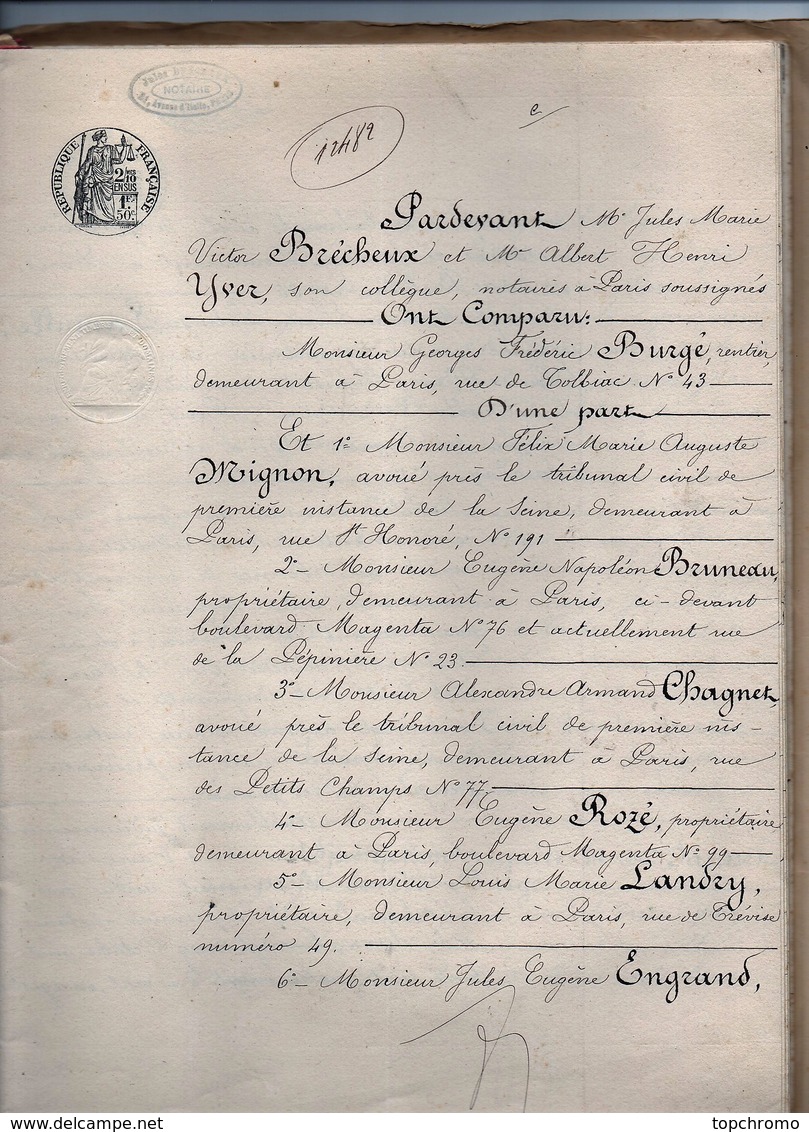 Jules
NOTAIRE
Avenue d'Italie,
12482
e
RÉPUBLIQUE FRANÇAISE
2/10 EN SUS
1F.
50c
Pardevant Me Jules Marie
Victor Brécheux et Me Albert Henri
Yver, son collègue, notaires à Paris soussignés
Ont Comparu:
Monsieur Georges Frédéric Burgé, rentier,
demeurant à Paris, rue de Tolbiac No 43
D'une part
Et 1o Monsieur Félix Marie Auguste
Mignon, avoué près le tribunal civil de
première instance de la Seine, demeurant à
Paris, rue St Honoré, No 191
2o Monsieur Eugène Napoléon Bruneau,
propriétaire, demeurant à Paris, ci-devant
boulevard Magenta No 76 et actuellement rue
de la Pépinière No 23.
3o Monsieur Alexandre Armand Chagnet,
avoué près le tribunal civil de première ins-
tance de la Seine, demeurant à Paris, rue
des Petits Champs No 77.
4o Monsieur Eugène Rozé, propriétaire
demeurant à Paris, boulevard Magenta No 99
5o Monsieur Louis Marie Landry,
propriétaire, demeurant à Paris, rue de Trévise
numéro 49.
6o Monsieur Jules Eugène Engrand,
topchromo